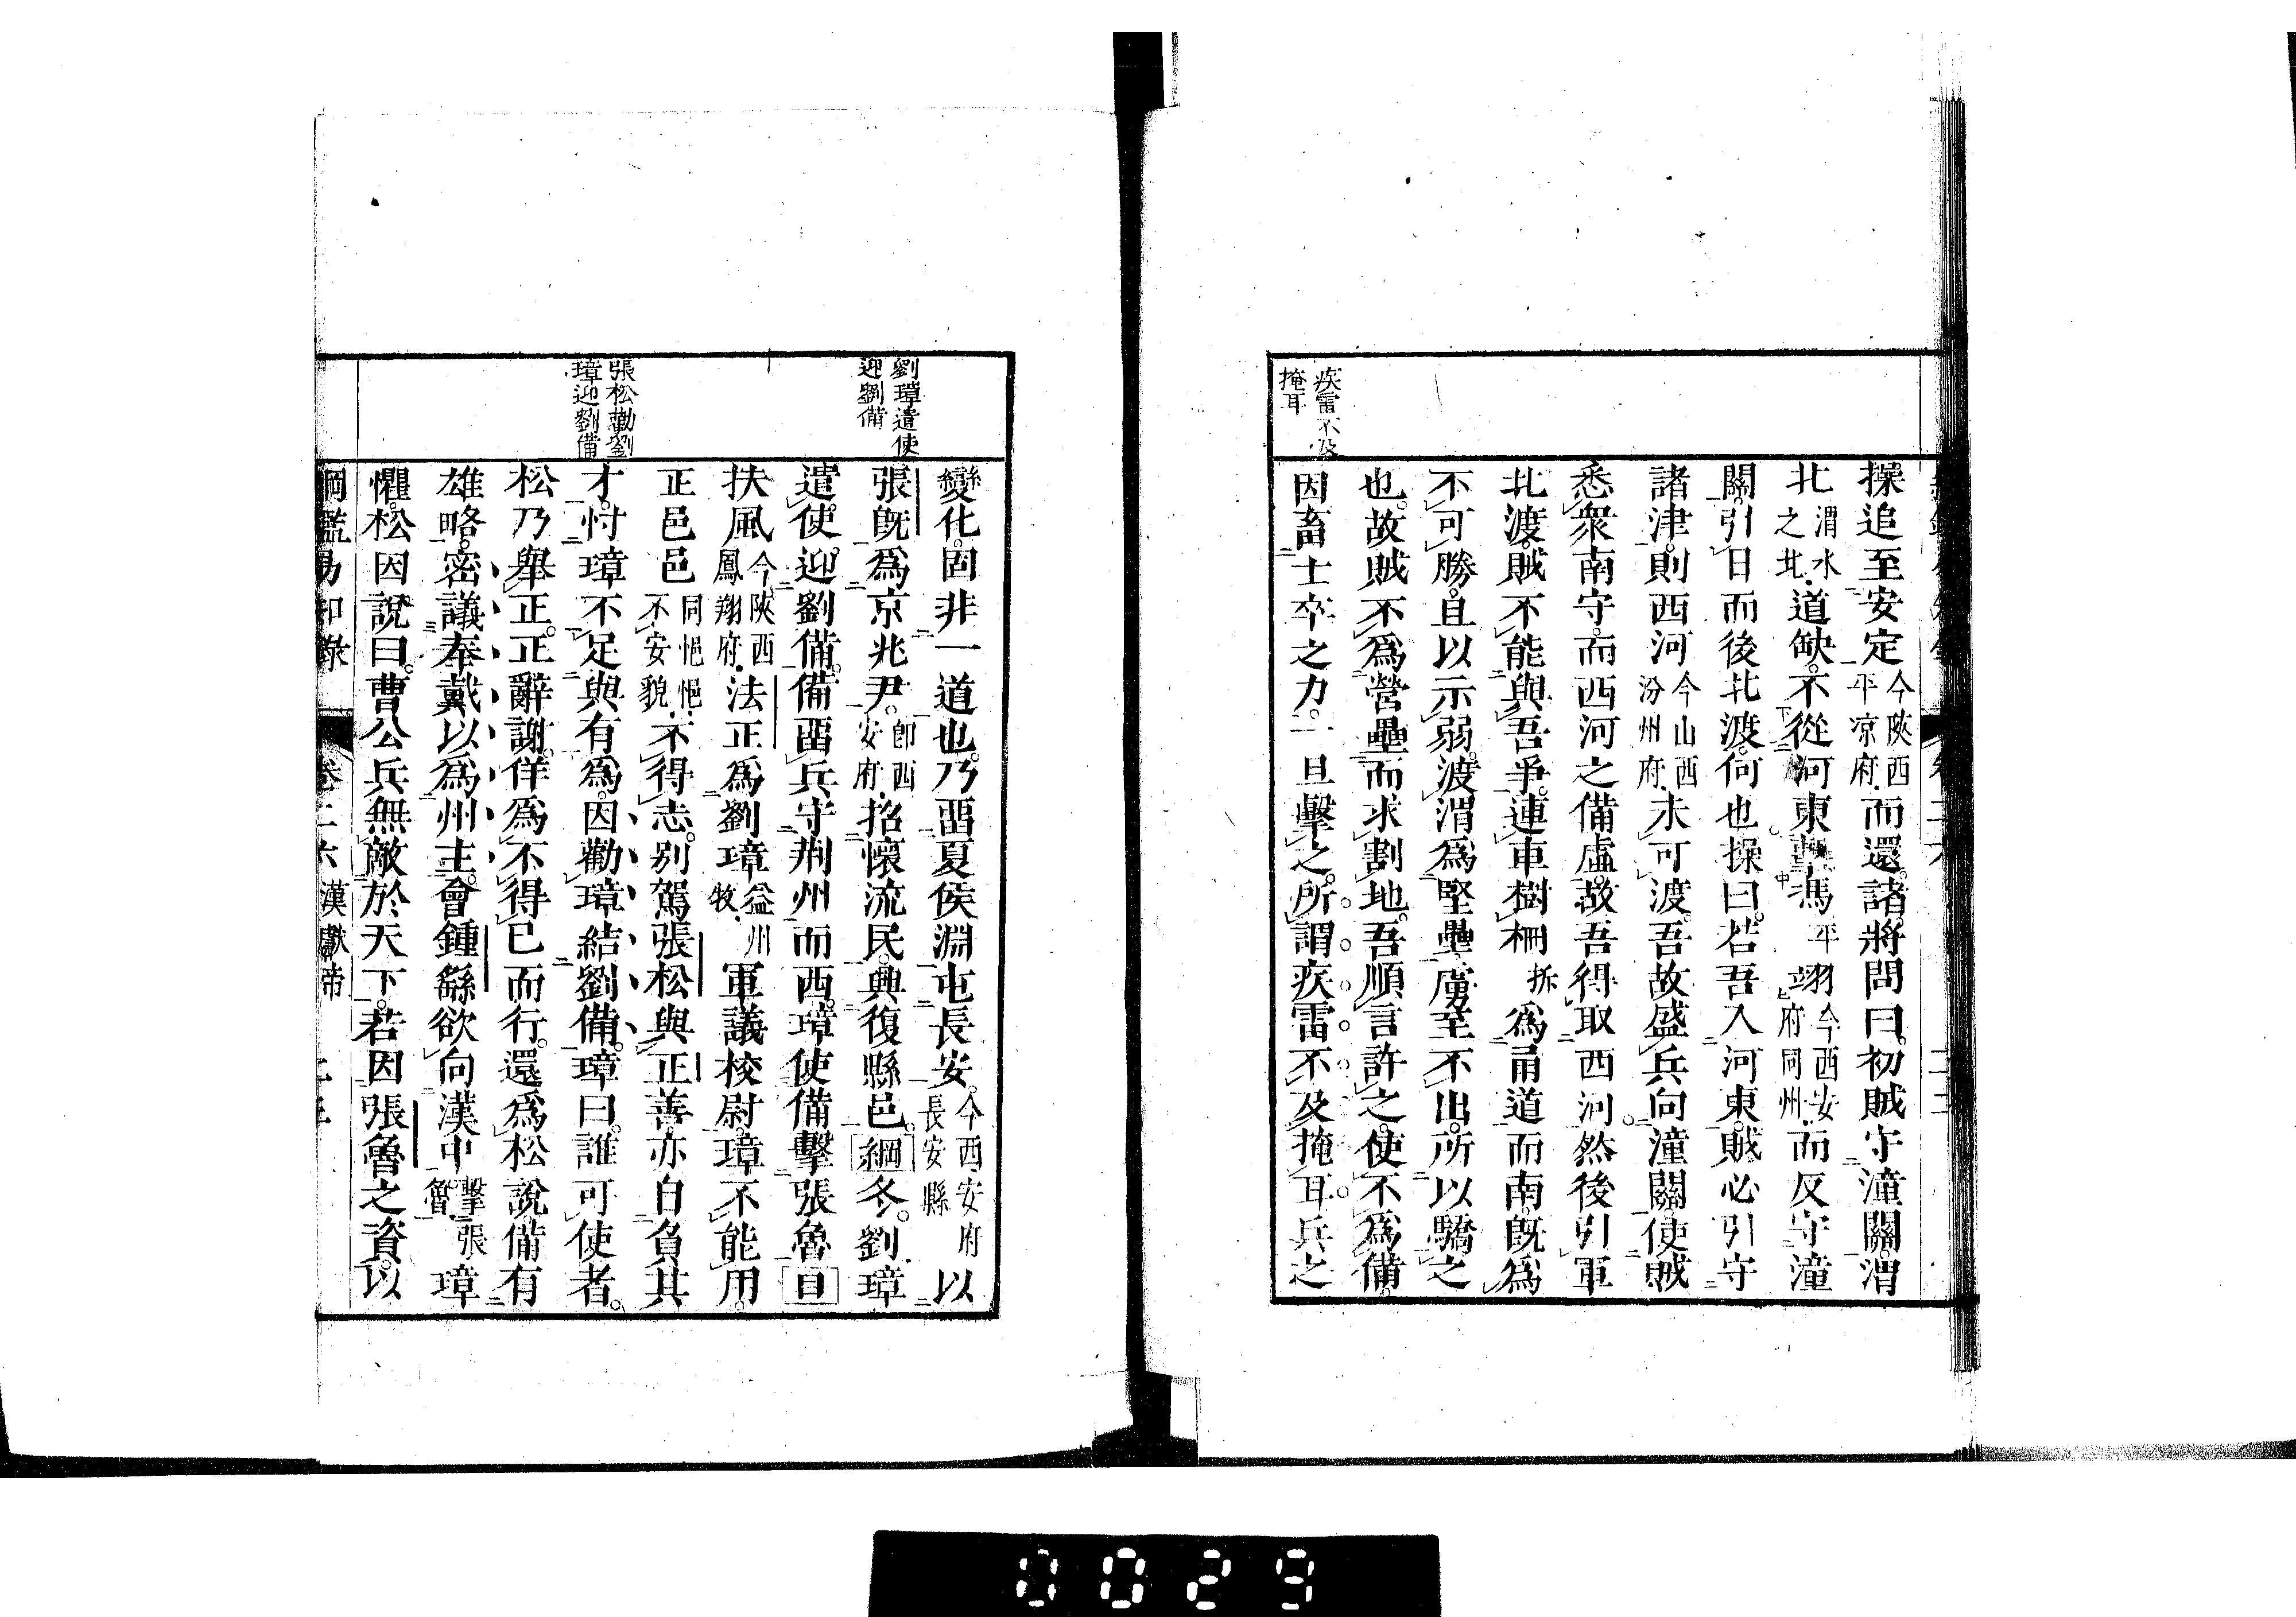 操追至安定今陝西平凉府而還諸將問曰初賊守潼關渭
北渭水之北道缺不從河東擊馮平翊今西安府同州而反守潼
關引日而後北渡何也操曰若吾入河東賊必引守
諸津則西河今山西汾州府未可渡吾故盛兵向潼關使賊
悉衆南守而西河之備虛故吾得取西河然後引軍
北渡賊不能與吾爭連車樹柵拆爲甬道而南既爲
不可勝且以示弱渡渭爲堅壘虜至不出所以驕之
也故賊不爲營壘而求割地吾順言許之使不爲備
因畜士卒之力一旦擊之所謂疾雷不及掩耳兵之
疾雷不及
掩耳
劉璋遣使
迎劉備
變化固非一道也乃畱夏侯淵屯長安今西安府長安縣以
張既爲京兆尹卽西安府招懷流民興復縣邑綱冬劉璋
遣使迎劉備備畱兵守荆州而西璋使備擊張魯目
扶風今陝西鳳翔府法正爲劉璋益州牧軍議校尉璋不能用
正邑邑同悒悒不安貌不得志別駕張松與正善亦自負其
才忖璋不足與有爲因勸璋結劉備璋曰誰可使者
松乃舉正正辭謝佯爲不得已而行還爲松說備有
雄略密議奉戴以爲州主會鍾繇欲向漢中擊張魯璋
懼松因說曰曹公兵無敵於天下若因張魯之資以
張松勸劉
璋迎劉備
綱鑑易知錄 卷二六 漢獻帝